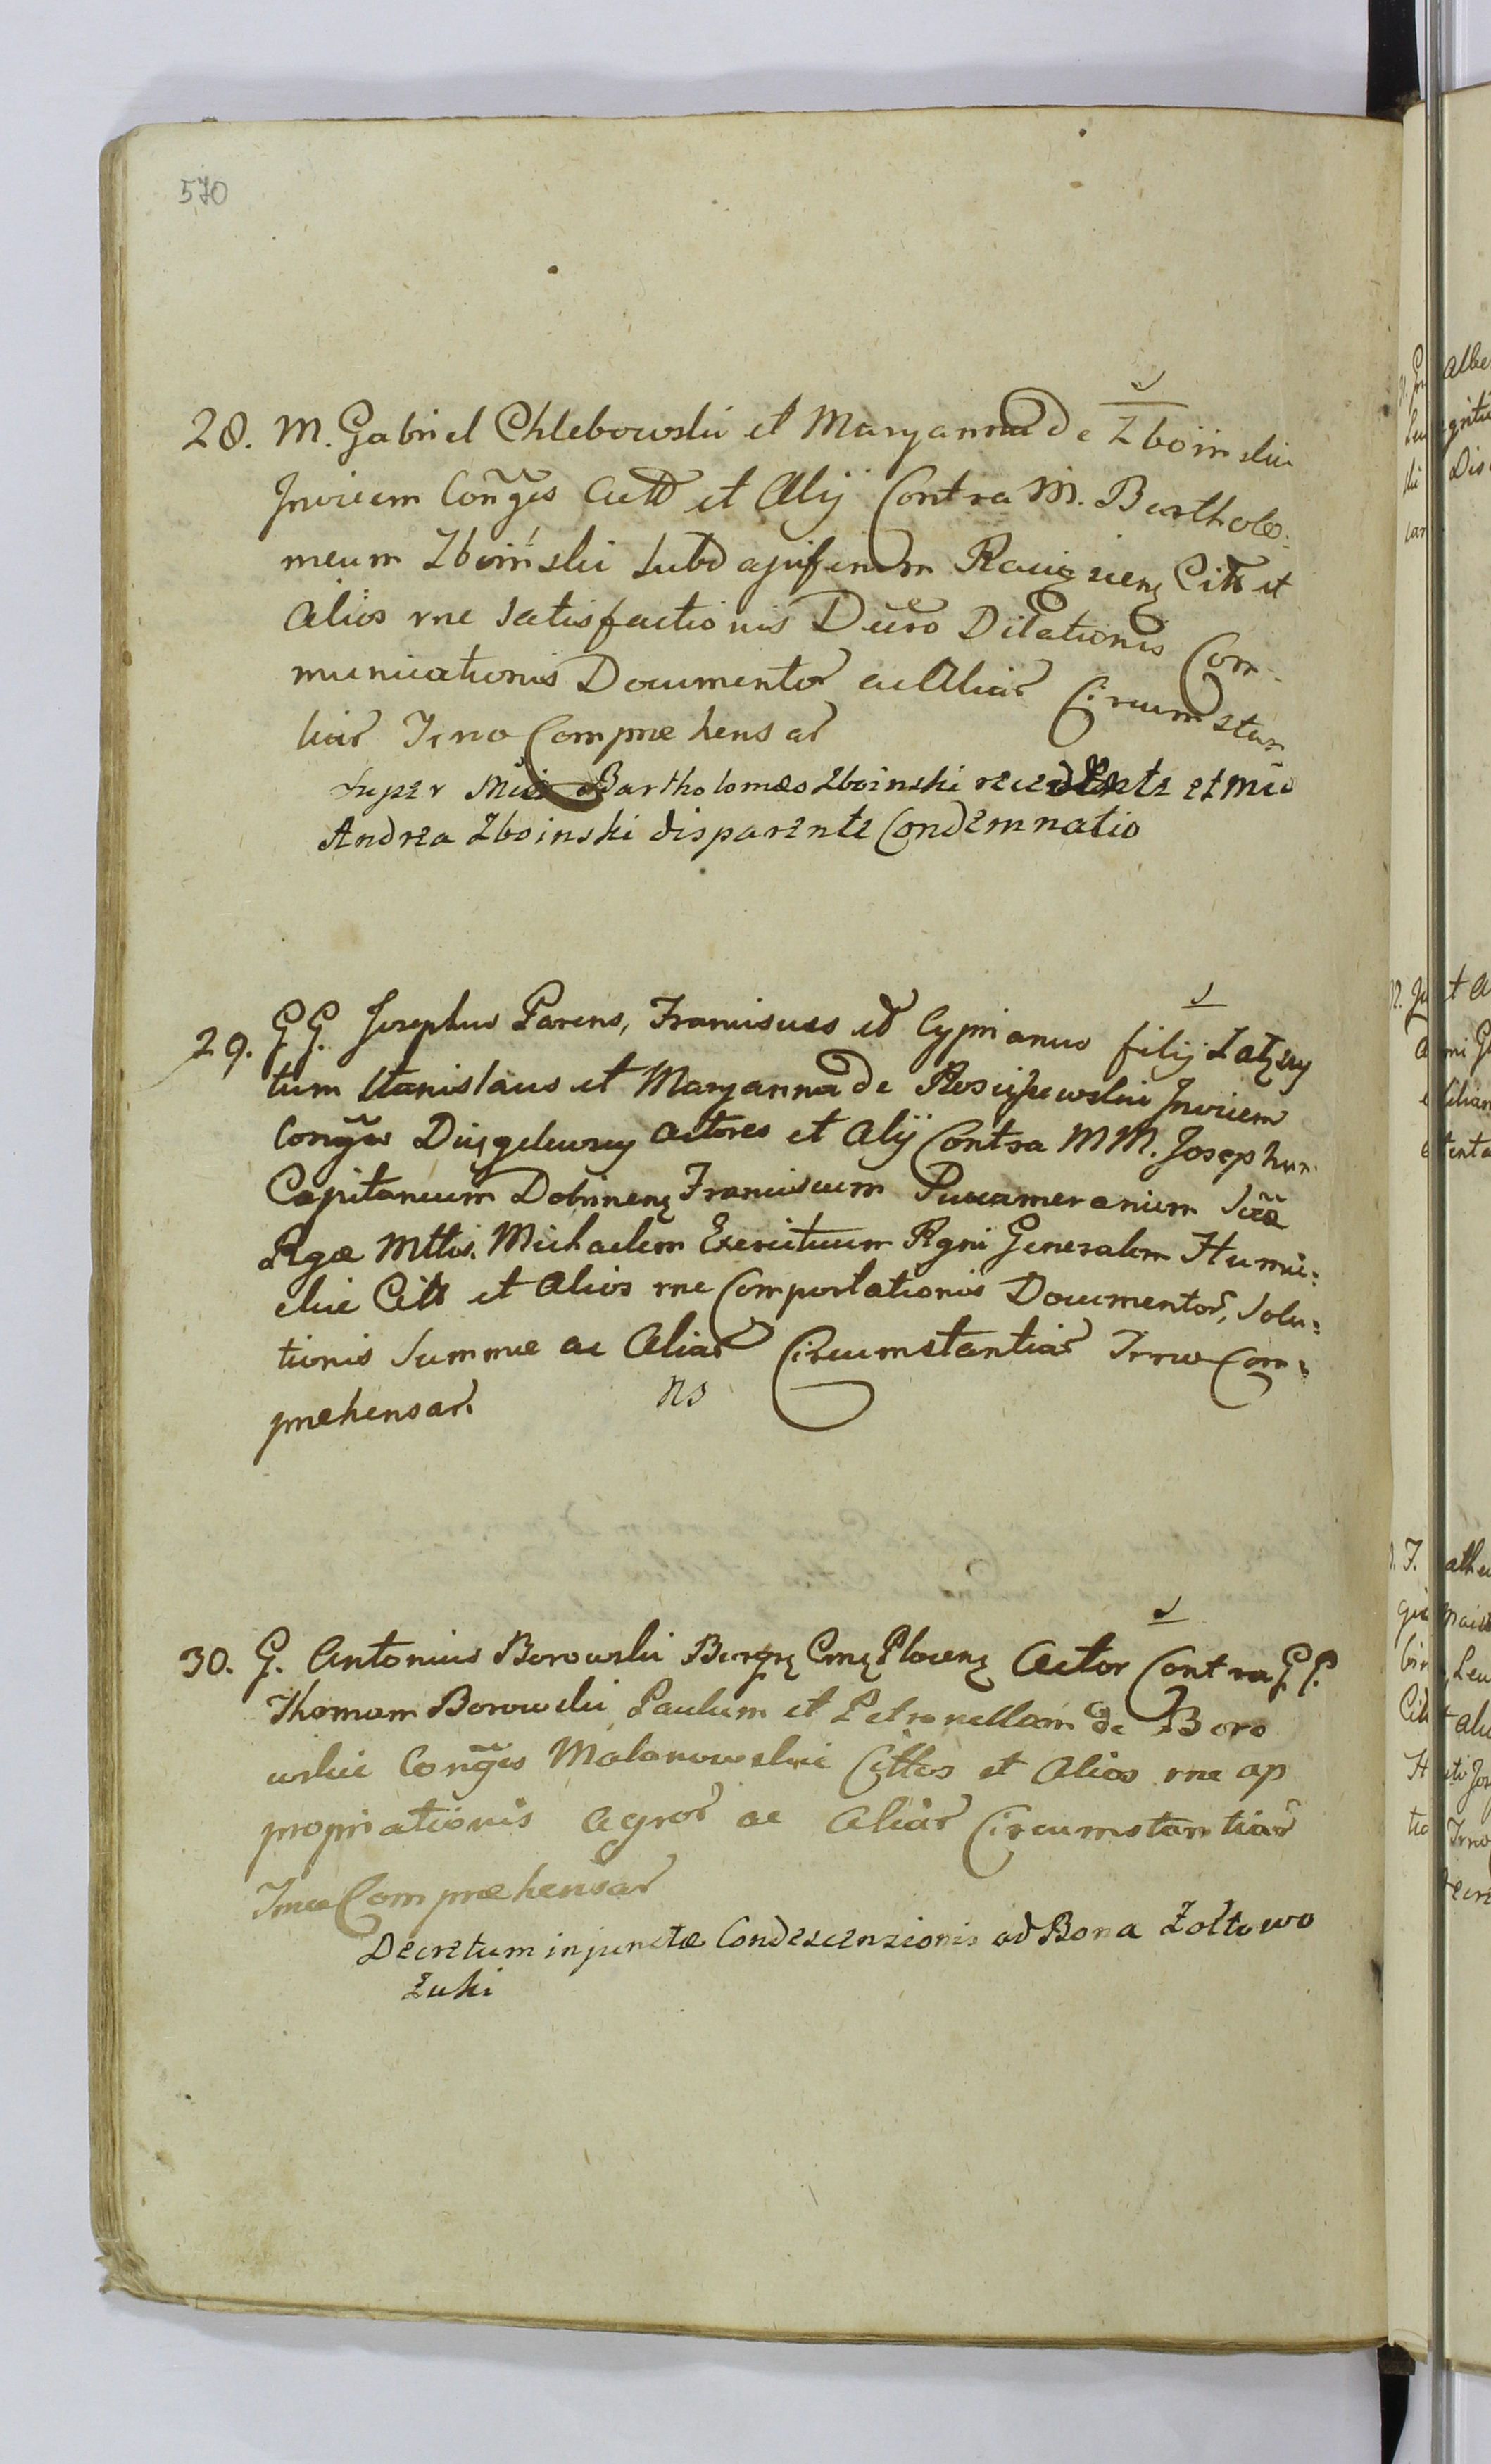 570
28. M. Gabriel Chlebowski et Maryanna de Zboinskie
Invicem Congēs Actt et Alij Contra M. Bartholo:
meum Zboiński Subdapiferum Raciązienę Citt et
Alios rne Satisfactionis Decro Dilationis Com-
municationis Documentor ac Aliar Circumstan
tiar Irno Compræhensar
Super Mco Bartholomæo Zboinski recedente et Mco
Andrea Zboinski disparente Condemnatio
29. GG. Josephus Parens, Franciscus et Cyprianus filij
tum Stanislaus et Maryanna de Rosciszewskie Invicem
Congēs Actores et Alij Contra MM. Josephum
Capitaneum Dobrinenę Franciscum Sacæ
Rgæ Mttis. Michaelem Exercituum Rgni Generalem Humie:
ckie Citt et Alios rne Comportationis Documentor, Solu:
tionis Summæ ac Aliar Circumstantiar Irno Com:
præhensar.
ns
30. G. Antonius Borowski Burgrę Cmę Plocenę Actor Contra GG.
Thomam Borowski, Paulum et Petronellam de Boro
wskie Congēs Malanowskie Cittos et Alios rne ap
propriationis Agror ac Aliar Circumstantiar
Irno Compræhensar
Decretum injunctæ Condescensionis ad Bona Żołtowo
Żuki